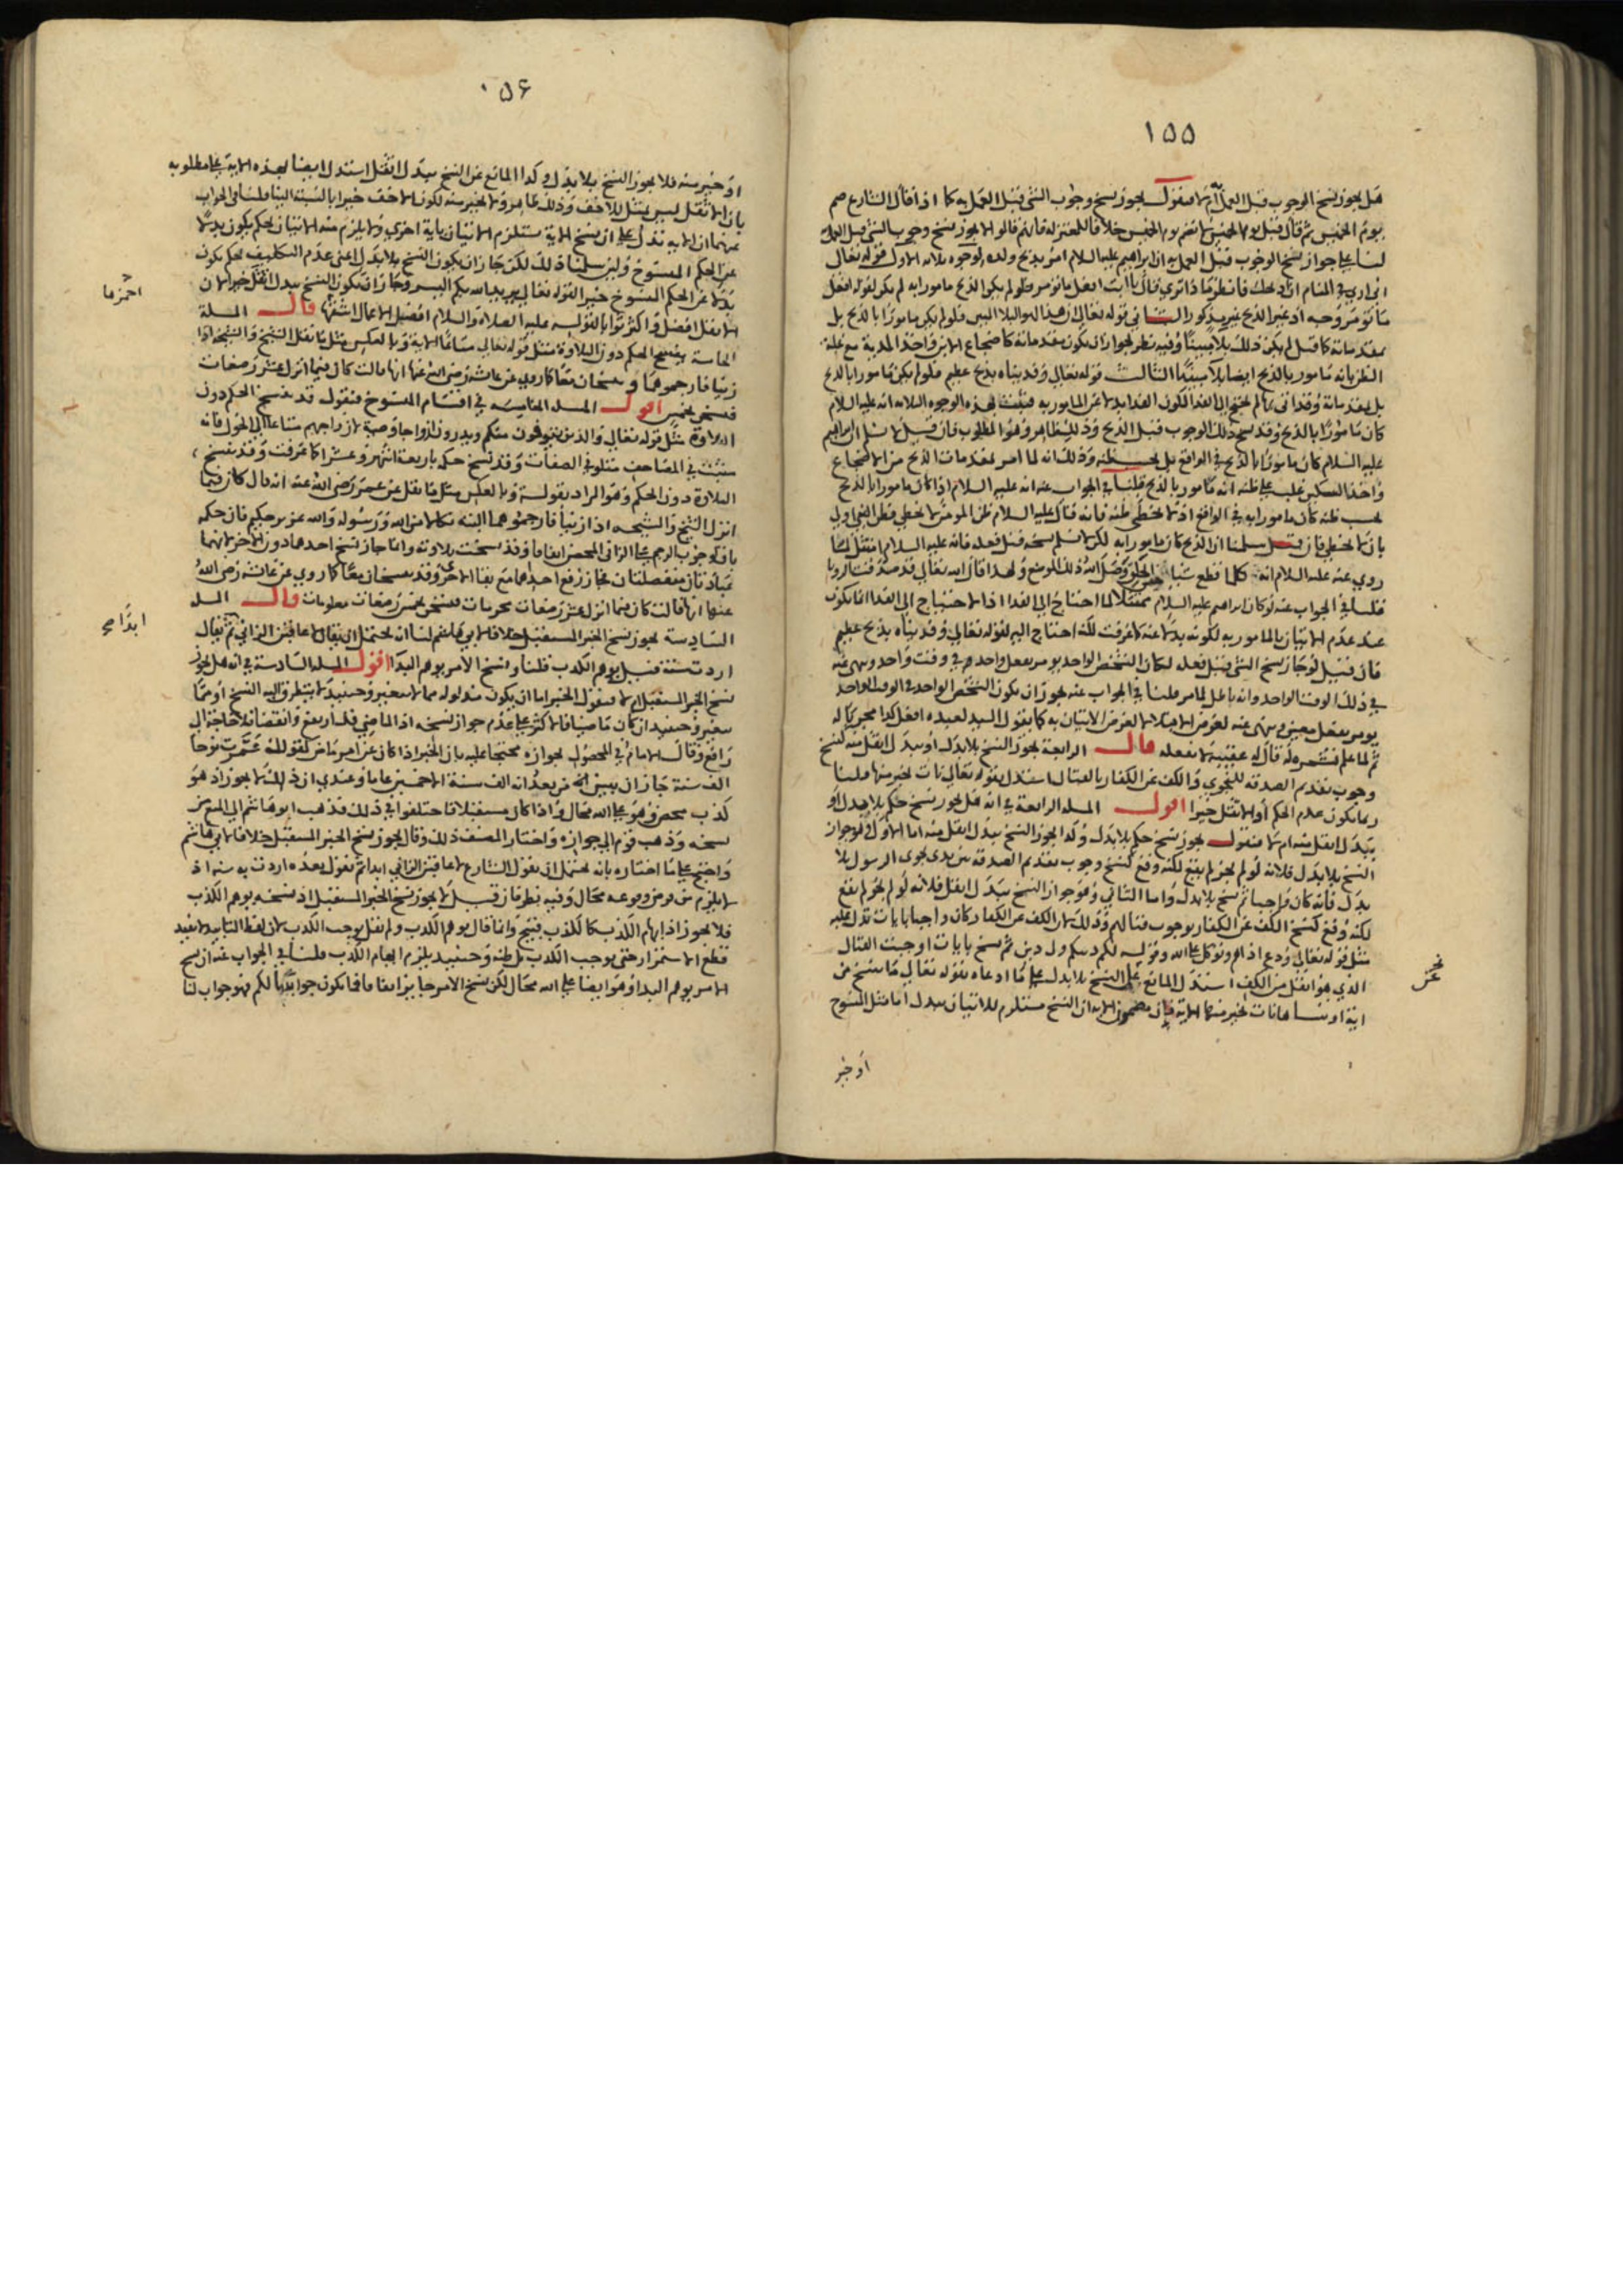 ١٥٥
هل يجوز نسخ الوجوب قبل العمل ام لا فنقول يجوز نسخ وجوب الشئ قبل العمل به كما اذا قال الشارع صم
يوم الخميس ثم قال قبل يوم الخميس لا تصم يوم الخميس خلافا للمعتزلة فانهم قالوا لا يجوز نسخ وجوب الشئ قبل العمل
لنا على جواز نسخ الوجوب قبل العمل به ان ابراهيم عليه السلام امر بذبح ولده لوجوه ثلاثة الاول قوله تعالى
اني ارى في المنام اني اذبحك فانظر ماذا ترى قال يا ابت افعل ما تؤمر فلو لم يكن الذبح مامورا به لم يكن لقوله افعل
ما تؤمر وجه اذ غير الذبح غير مذكور الثاني قوله تعالى ان هذا لهو البلاء المبين فلو لم يكن مامورا بالذبح بل
بمقدماته كما قيل لم يكن ذلك بلاء مبينا وفيه نظر لجواز ان يكون مقدماته كاضجاع الابن واخذ المدية مع غلبة
الظن بانه مامور بالذبح ايضا بلاء مبينا الثالث قوله تعالى وفديناه بذبح عظيم فلو لم يكن مامورا بالذبح
بل بمقدماته وقد اتى بها لم يحتج الى الفداء لكون الفداء بدلا عن المامور به فثبت بهذه الوجوه الثلاثة انه عليه السلام
كان مامورا بالذبح وقد نسخ ذلك الوجوب قبل الذبح وذلك ظاهر وهو المطلوب فان قيل لا نسلم ان ابراهيم
عليه السلام كان مامورا بالذبح في الواقع بل بحسب ظنه وذلك انه لما امر بمقدمات الذبح من الاضجاع
واخذ السكين غلب على ظنه انه مامور بالذبح قلنا في الجواب عنه انه عليه السلام اذا كان مامورا بالذبح
بحسب ظنه كان مامورا به في الواقع اذ لا يخطئ ظنه فانه قال عليه السلام ظن المؤمن لا يخطئ فظن النبي اولى
بان لا يخطئ فان قيل سلمنا ان الذبح كان مامورا به لكن لا نسلم نسخه قبل فعله فانه عليه السلام امتثل لما
روي عنه عليه السلام انه كلما قطع شيئا من الحلق وصل الله ذلك الموضع ولهذا قال الله تعالى قد صدقت الرؤيا
قلنا في الجواب عنه لو كان ابراهيم عليه السلام ممتثلا لما احتاج الى الفداء اذ الاحتياج الى الفداء انما يكون
عند عدم الاتيان بالمامور به لكونه بدلا عنه كما عرفت لكنه احتاج اليه لقوله تعالى وفديناه بذبح عظيم
فان قيل لو جاز نسخ الشئ قبل فعله لكان الشخص الواحد يؤمر بفعل واحد في وقت واحد ونهى عنه
في ذلك الوقت الواحد وانه باطل لما مر قلنا في الجواب عنه يجوز ان يكون الشخص الواحد في الوقت الواحد
يؤمر بفعل معين ونهى عنه لغرض الابتلاء لا لغرض الاتيان به كما يقول السيد لعبده افعل كذا مجربا له
ثم لما علم تشمره له قال له عقيبه لا تفعله قال الرابعة يجوز النسخ بلا بدل او ببدل اثقل منه كنسخ
وجوب تقديم الصدقة للنجوى والكف عن الكفار بالقتال استدل بقوله تعالى نات بخير منها قلنا
ربما يكون عدم الحكم او الاثقل خيرا اقول المسلة الرابعة في انه هل يجوز نسخ حكم بلا بدل او
ببدل اثقل منه ام لا فنقول يجوز نسخ حكم بلا بدل وكذا يجوز النسخ ببدل اثقل منه اما الاول فهو جواز
النسخ بلا بدل فلانه لو لم يجز لم يقع لكنه وقع كنسخ وجوب تقديم الصدقة بين يدي نجوى الرسول بلا
بدل فانه كان واجبا ثم نسخ بلا بدل واما الثاني وهو جواز النسخ ببدل اثقل فلانه لو لم يجز لم يقع
لكنه وقع كنسخ الكف عن الكفار بوجوب قتالهم وذلك لان الكف عن الكفار كان واجبا بايات تدل عليه
مثل قوله تعالى ودع اذاهم وتوكل على الله وقوله لكم دينكم ولي دين ثم نسخ بايات اوجبت القتال
الذي هو اثقل من الكف استدل المانع عن النسخ بلا بدل على ما ادعاه بقوله تعالى ما ننسخ من
اية او ننساها نات بخير منها الاية فان مضمون الاية ان النسخ مستلزم للاتيان ببدل اما مثل المنسوخ
او خير
١٥٦
او خير منه فلا يجوز النسخ بلا بدل وكذا المانع عن النسخ ببدل اثقل استدل ايضا بهذه الاية على مطلوبه
بان الاثقل ليس بمثل للاخف وذلك ظاهر ولا بخير منه لكون الاخف خيرا بالنسبة الينا قلنا في الجواب
عنهما ان الاية تدل على ان نسخ الاية مستلزم الاتيان باية اخرى ولا يلزم منه الاتيان بحكم يكون بدلا
عن الحكم المنسوخ ولئن سلمنا ذلك لكن جاز ان يكون النسخ بلا بدل اعني عدم التكليف بحكم يكون
بدلا عن الحكم المنسوخ خيرا لقوله تعالى يريد الله بكم اليسر وجاز ان يكون النسخ ببدل اثقل خيرا لان
الاثقل افضل واكثر ثوابا لقوله عليه الصلاة والسلام افضل الاعمال اشقها قال المسلة
الخامسة ينسخ الحكم دون التلاوة مثل قوله تعالى متاعا الاية وبالعكس مثل ما نقل الشيخ والشيخة اذا
زنيا فارجموهما وينسخان معا كما روي عن عائشة رضي الله عنها انها قالت كان فيما انزل عشر رضعات
فنسخن بخمس اقول المسلة الخامسة في اقسام المنسوخ فنقول قد ينسخ الحكم دون
التلاوة مثل قوله تعالى والذين يتوفون منكم ويذرون ازواجا وصية لازواجهم متاعا الى الحول فانه
مثبت في المصاحف متلو في الصفات وقد نسخ حكمه باربعة اشهر وعشرا كما عرفت وقد ينسخ
التلاوة دون الحكم وهو المراد بقوله وبالعكس مثل ما نقل عن عمر رضي الله عنه انه قال كان فيما
انزل الشيخ والشيخة اذا زنيا فارجموهما البتة نكالا من الله ورسوله والله عزيز حكيم فان حكمه
باق كوجوب الرجم على الزاني المحصن اتفاقا وقد نسخت تلاوته وانما جاز نسخ احدهما دون الاخر لانهما
عبادتان منفصلتان فجاز رفع احداهما مع بقاء الاخرى وقد ينسخان معا كما روي عن عائشة رضي الله
عنها انها قالت كان فيما انزل عشر رضعات محرمات فنسخن بخمس رضعات معلومات قال المسلة
السادسة يجوز نسخ الخبر المستقبل خلافا لابي هاشم لنا انه يحتمل ان يقال لاعاقبن الزاني ثم يقال
اردت سنة قيل يوهم الكذب قلنا ونسخ الامر يوهم البدا اقول المسلة السادسة في انه هل يجوز
نسخ الخبر المستقبل ام لا فنقول الخبر اما ان يكون مدلوله مما لا يتغير وحينئذ لا يتطرق اليه النسخ او مما
يتغير وحينئذ ان كان ماضيا فالاكثر على عدم جواز نسخه اذ الماضي قد ارتفع وانقضا فلا حاجة الى
رافع وقال الامام في المحصول بجوازه محتجا عليه بان الخبر اذا كان عن امر ماض كقوله عمرت نوحا
الف سنة جاز ان يبين انه من بعد انه الف سنة الا خمسين عاما وعندي ان ذلك لا يجوز اذ هو
كذب محض وهو على الله محال واذا كان مستقبلا فاختلفوا في ذلك فذهب ابو هاشم الى المنع من
نسخه وذهب قوم الى جوازه واختار المصنف ذلك وقال يجوز نسخ الخبر المستقبل خلافا لابي هاشم
واحتج على ما اختاره بانه يحتمل ان يقول الشارع لاعاقبن الزاني ابدا ثم يقول بعده اردت به سنة اذ
لا يلزم من فرض وقوعه محال وفيه نظر فان قيل لا يجوز نسخ الخبر المستقبل اذ نسخه يوهم الكذب
فلا يجوز اذ ايهام الكذب كالكذب قبيح وانما قال يوهم الكذب ولم يقل يوجب الكذب لان لفظ التابيد لا يفيد
قطع الاستمرار حتى يوجب الكذب بل ظنه وحينئذ يلزم ايهام الكذب قلنا في الجواب عنه ان نسخ
الامر يوهم البدا وهو ايضا على الله محال لكن نسخ الامر جايز اتفاقا فما يكون جوابا لكم فهو جواب لنا
احمزها
ابدا صح